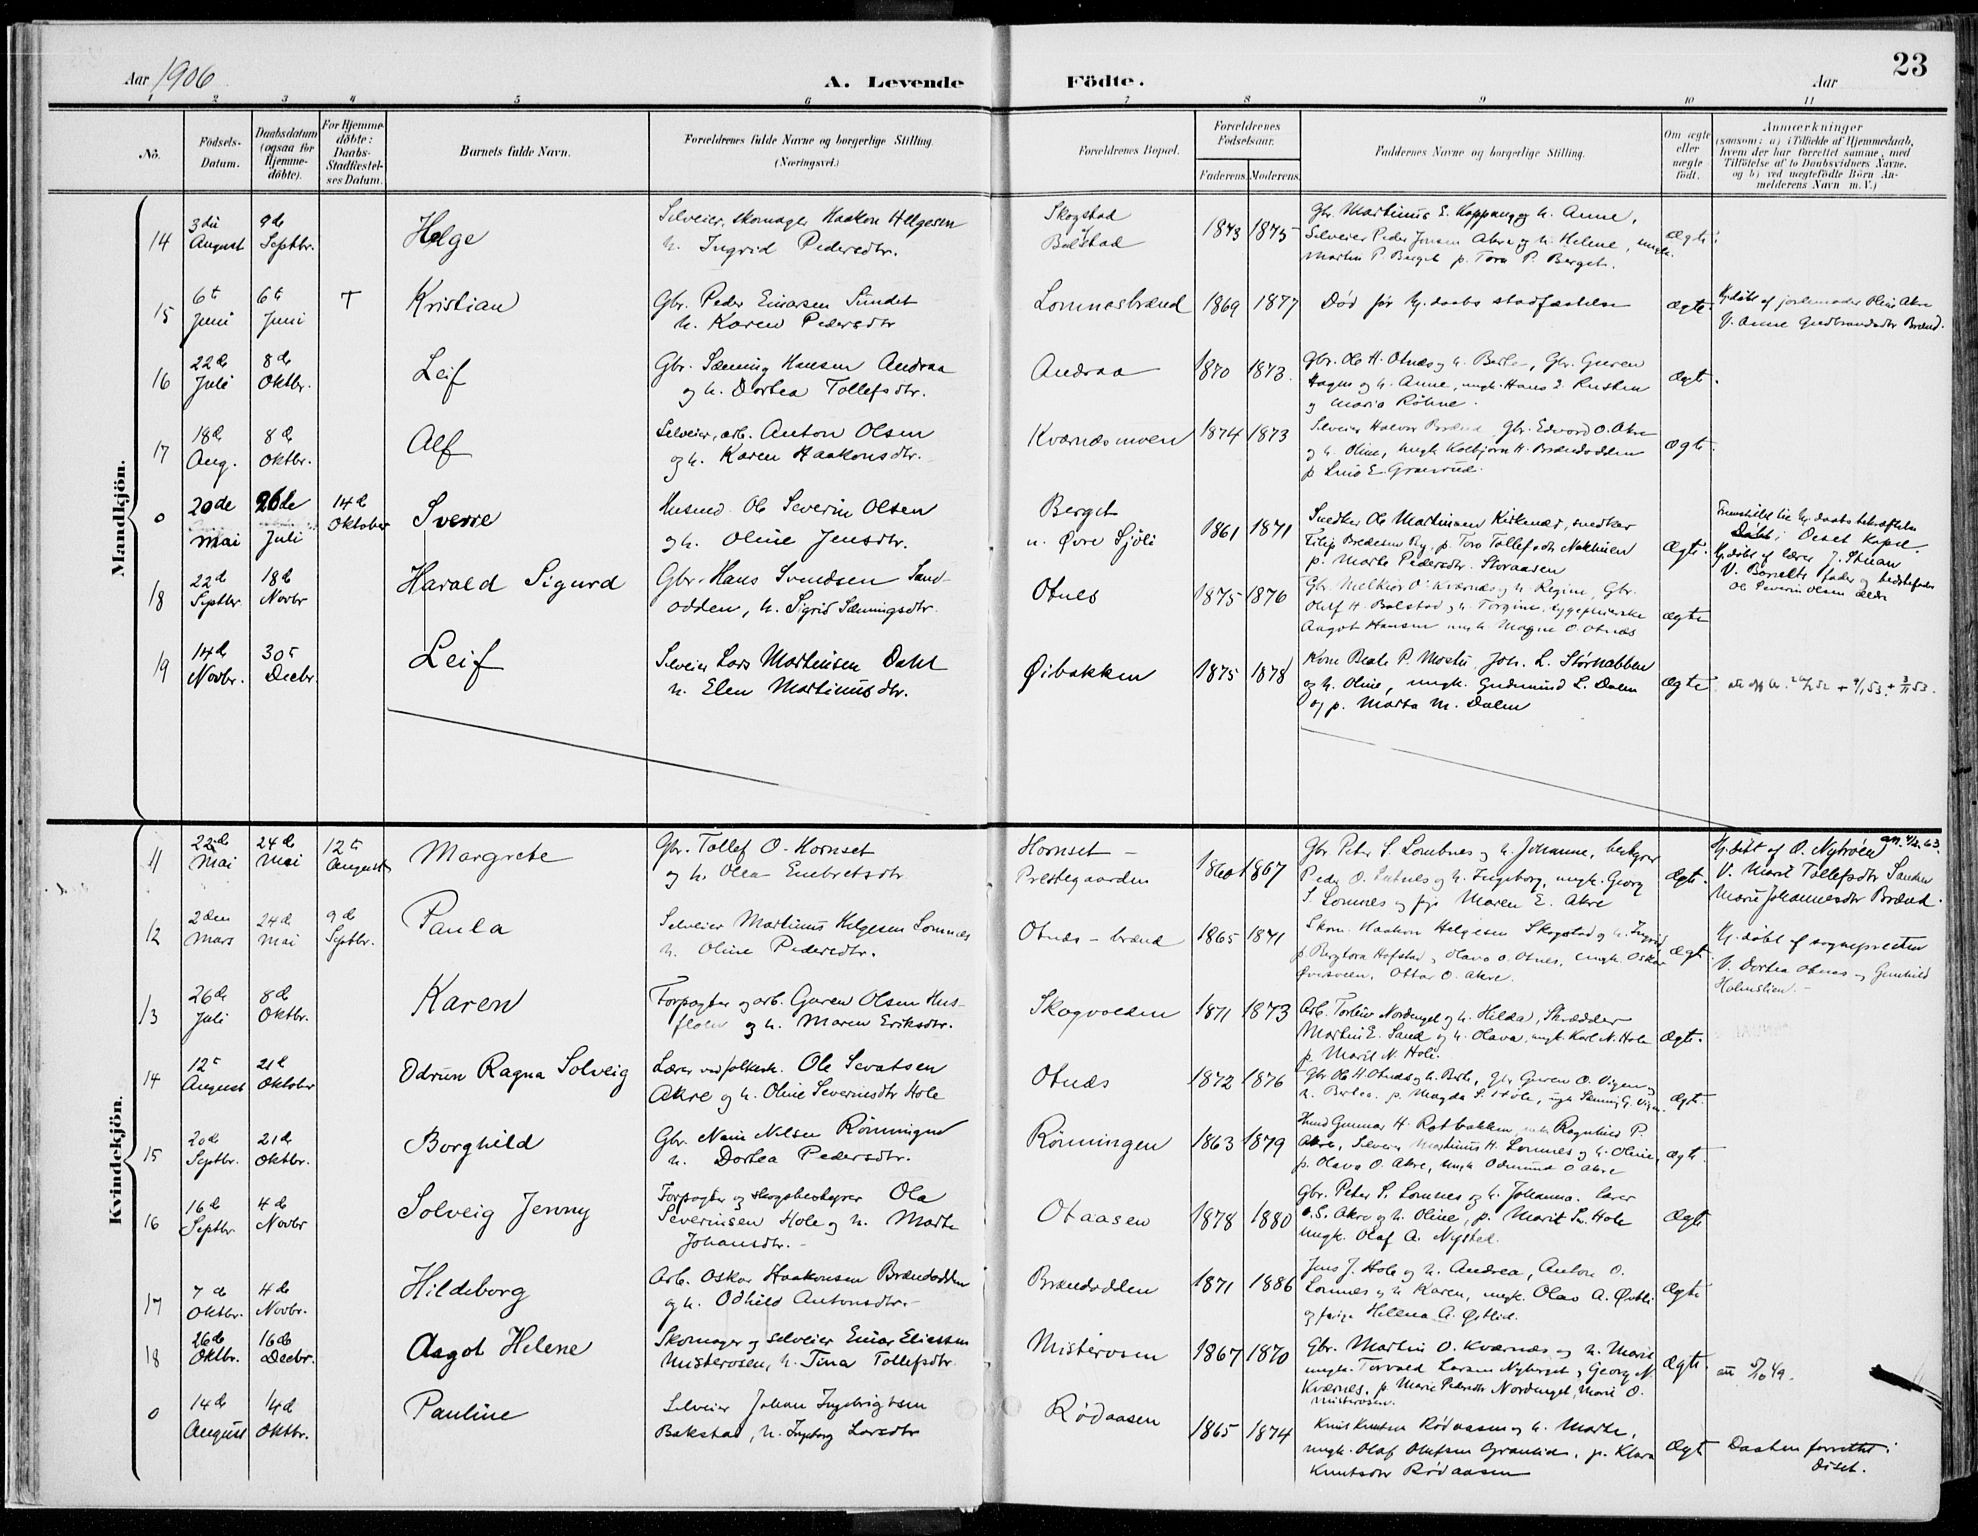 23
Aar 1906
A. Levende Födte.
Aar
1 2 3 4 5 6 7 8 9 10 11
No.
Födsels-Datum.
Daabsdatum (ogsaa for Hjemmedøbte).
For Hjemmedøbte: Daabs-Stadfæstelses Datum.
Barnets fulde Navn.
Forældrenes fulde Navne og borgerlige Stilling.
(Næringsvei.)
Forældrenes Bopæl.
Forældrenes Födselsaar.
Faderens. Moderens.
Faddernes Navne og borgerlige Stilling.
Om ægte eller uægte födt.
Anmærkninger
(saasom: a) i Tilfælde af Hjemmedaab,
hvem der har forrettet samme, med
Tilföielse af to Daabsvidners Navne,
og b) ved uægtefödte Börn Anmelderens Navn m. V.)
Mandkjön.
14 3die August 9de Septbr. Helge
Selveier, skomager Haakon Helgesen
h. Ingrid Pedersdtr.
Skogstad Bolstad 1873 1875
Gbr. Martinus E. Koppang og h. Anne,
Selveier Peder Jonsen Akre og h. Helene, ungk.
Martin P. Berget p. Tora P. Berget.
ægte
15 6te Juni 6te Juni T Kristian
Gbr. Peder Einarsen Sundet
h. Karen Pedersdtr
Lomnesbrænd 1869 1877
Død før hj.daabs stadfæstelse
ægte.
Hj.døbt af jordemoder Oline Akre
V. Anne Gudbrandsdtr Brænd.
16 22de Juli 8de Oktbr. Leif
Gbr. Sæming Hansen Andraa
og h. Dortea Tollefsdtr.
Andraa 1870 1873.
Gbr. Ole H. Otnes og h. Berte, Gbr. Guren
Hagen og h. Anne, ungk. Hans
og Maria Röhne.
ægte.
17 18de Aug. 8de Oktbr. Alf
Selveier, arb. Anton Olsen
og h. Karen Haakonsdtr.
Kværnesmoen 1874 1873
Selveier Halvor Brænd, Gbr. Edvard O. Akre
og h. Oline, ungk. Kolbjørn H. Brændodden
p.
ægte.
0 20de Mai 26de Juli 14de Oktober Sverre
Husmd. Ole Severin Olsen
og h. Oline Jensdtr.
Berget u. Øvre Sjöli 1861 1871
Snedker Ole Martinsen Kirkenær, snedker
Filip Bredesen By, p. Tora Tollefsdtr Nökleien
p. Marte Pedersdtr. Storaasen
Ægte.
Fremstillet til hj.daabs bekræftelse
Döbt i Oeset Kapel.
Hj.döbt af lærer J. Stuan
V. Barnets fader og bedstefader
Ole Severin Olsen ældre
18 22de Septbr 18de Novbr Harald Sigurd
Gbr. Hans Svendsen Sandodden, h. Sigrid Sæmingsdtr.
Otnes 1875 1876
Gbr. Melkior O. Kværnes og h. Regine, Gbr.
Oluf H. Bolstad og h. Torgine, sygepleierske
Aagot Hansen ungk. Magne O. Otnes
ægte
19 14de Novbr. 30te Decbr. Leif
Selveier Lars Martinsen Dahl
h. Elen Martinusdtr.
Øibakken 1875 1878
Kone Beate P. Mostu, Joh. L. Störnabben
og h. Oline, ungk. Gudmund L. Dalen
og p. Marta M. Dalen
ægte
Kvindekjön.
11 22de Mai 24de Mai 12te August Margrete
Gbr. Tollef O. Hornset
og h. Olea Embretsdtr.
Hornset - Prestegaarden 1860 1867
Gbr. Peter S. Lombnes og h. Johanne, bestyrer
Peder O. Sætnes og h. Ingeborg, ungk. Georg
S. Lomnes og pige Maren E. Akre
Ægte.
Hj.döbt af O. Nytrøen
V. Marit Tollefsdtr Sanden
Marie Johannesdtr Brænd.
12 2den Mars 24de Mai 9de Septbr. Paula
Selveier Martinus Helgesen Lomnes
h. Oline Pedersdtr.
Otnes - brænd 1865 1871
Skom. Haakon Helgesen Skogstad og h. Ingrid
p. Bergtora Hofstad, Olava O. Otnes, ungk. Oskar
Øverveien, Ottar O. Akre.
Ægte.
Hj.döbt af sognepresten
V. Dortea Otnes og Gunhild
Holmslien.
13 26de Juli 8de Oktbr. Karen
Forpagter og arb. Guren Olsen Husfloen og h. Maren Eriksdtr.
Skogvolden 1871 1873
Arb. Torleiv Nordenget og h. Hilda, Skrædder
Martin E. Sand og h. Olava, ungk. Karl N. Hole
p. Marit N. Hole.
Ægte.
14 12te August 21de Oktober Odrun Ragna Solveig
Lærer ved folkesk. Ole Sevatsen
Akre og h. Oline Severinsdtr Hole
Otnes 1872 1876
Gbr Ole H. Otnes og h. Berte, gbr Guren O. Vigen og
h. Bertea. p. Magda S. Hole, ungk Sæming G. Vigen.
Ægte.
15 20de Septbr. 21de Oktbr. Borghild
Gbr. Nils Nilsen Rönningen
h. Dortea Pedersdtr.
Rönningen 1863 1879
Husmd Gunnar H. Rotbakken, enke Ragnhild P.
Akre, Selveier Martinus H. Lomnes og h. Oline,
p. Olava O. Akre, ungk Odmund O. Akre
Ægte.
16 16de Septbr. 4de Novbr Solveig Jenny
Forpagter og skogbestyrer Ola
Severinsen Hole og h. Marte
Johansdtr.
Otaasen 1878 1880
Gbr. Peter S. Lomnes og h. Johanna. lærer
O. S. Akre og h. Oline, p. Marit Sev. Hole
ungk. Olaf A. Nysted.
Ægte
17 7de Oktbr. 4de Novbr. Hildeborg
Arb. Oskar Haakonsen Brændodden
og h. Odhild Antonsdtr.
Brændodden 1871 1886
Jens J. Hole og h. Andrea, Anton O.
Lomnes og h. Karen, ungk. Olav A. Østli
og pige Helena A. Østlid.
Ægte
18 26de Oktbr. 16de Decbr. Aagot Helene
Skomager og selveier Einar Eliassen
Misterosen, h. Tina Tollefsdtr.
Misterosen 1867 1870
Gbr. Martin O. Kværnes og h. Marit
ungk. Torvald Larsen Nyberget, Georg N.
Kværnes. p. Marie Pedersdtr Nordenget, Marie O.
Misterosen.
Ægte.
0 14de August 14de Oktbr. Pauline
Selveier Johan Ingebrigtsen
Bakstad, h. Ingeborg Larsdtr
Rödaasen 1865 1874
Knut Knutsen Rödaasen og h. Marte,
ungk. Olaf Olufsen Granlid, p. Klara
Knutsdtr Rödaasen
Ægte
Daaben forrettet i
Oiset.